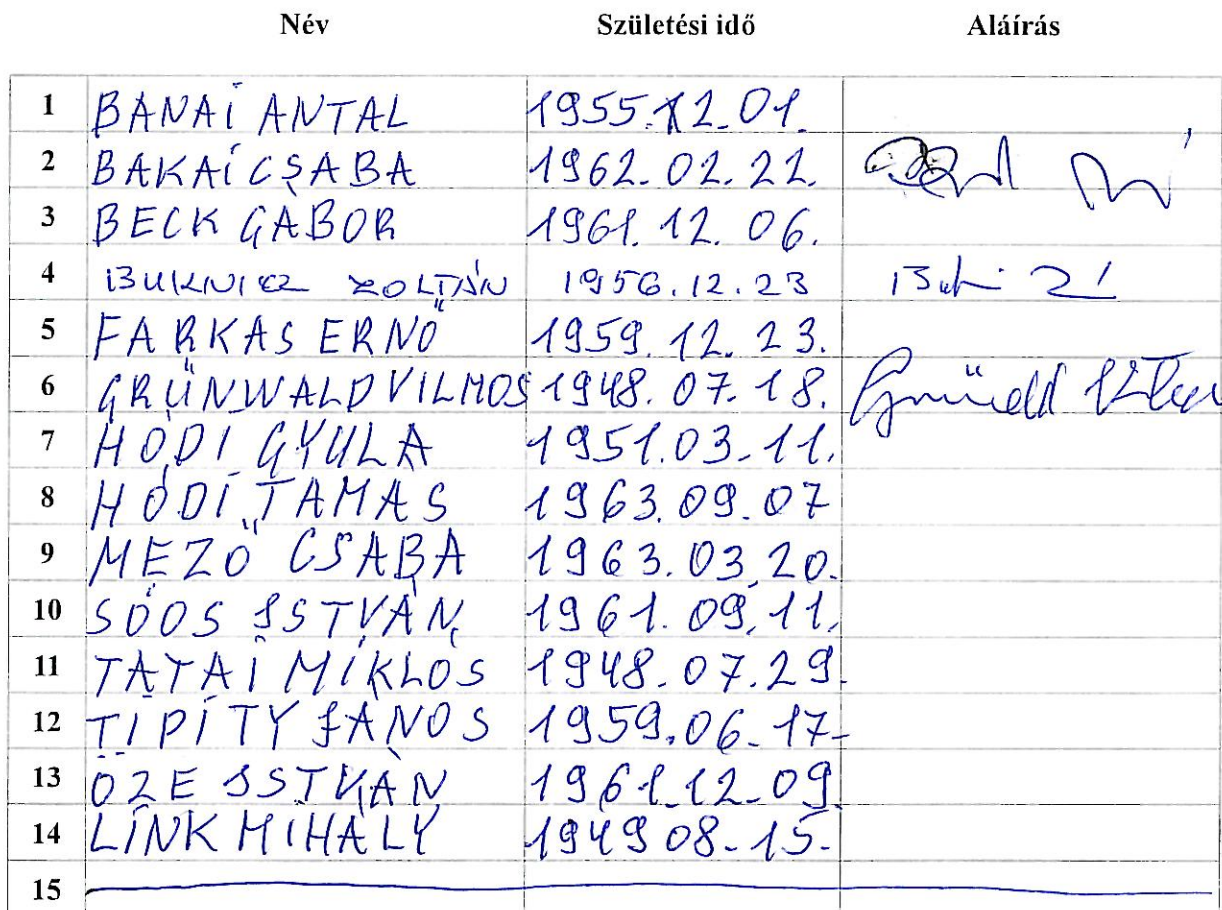 Név Születési idő Aláírás
1 BANAI ANTAL 1955.12.01.
2 BAKAI CSABA 1962.02.22.
3 BECK GÁBOR 1961.12.06.
4 BUKNICZ ZOLTÁN 1956.12.23
5 FARKAS ERNŐ 1959.12.23.
6 GRÜNWALD VILMOS 1948.07.18.
7 HÓDI GYULA 1951.03.11.
8 HÓDI TAMÁS 1963.09.07
9 MEZŐ CSABA 1963.03.20.
10 SOÓS ISTVÁN 1961.09.11.
11 TATAI MIKLÓS 1948.07.29.
12 TIPITY JÁNOS 1959.06.17.
13 ŐZE ISTVÁN 1961.12.09
14 LINK MIHÁLY 1949 08.15.
15